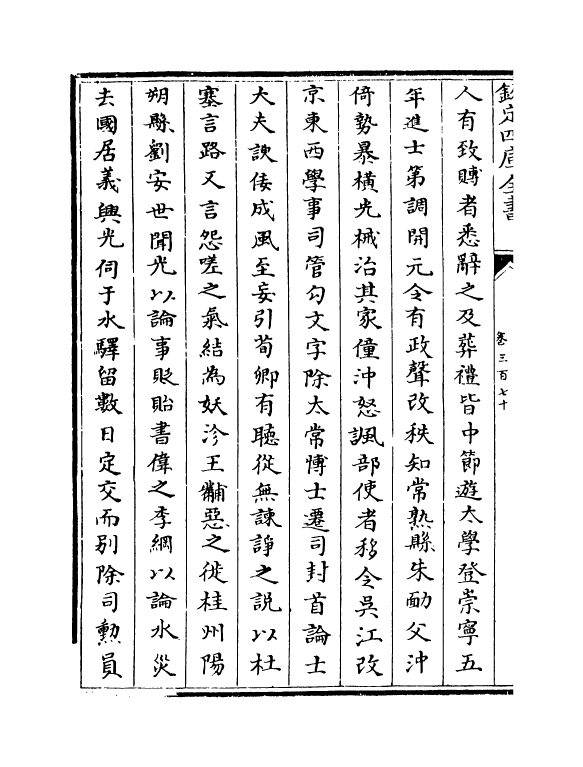 欽定四庫全書
卷三百七十
人有致賻者悉辭之及葬禮皆中節遊太學登崇寧五
年進士第調開元令有政聲改秩知常熟縣朱勔父沖
倚勢暴橫光械治其家僮沖怒諷部使者移令吳江改
京東西學事司管勾文字除太常博士遷司封首論士
大夫諛佞成風至妄引荀卿有聽從無諫諍之說以杜
塞言路又言怨嗟之氣結為妖沴王黼惡之徙桂州陽
朔縣劉安世聞光以論事貶貽書偉之李綱以論水災
去國居義興光伺于水驛留數日定交而別除司勲員